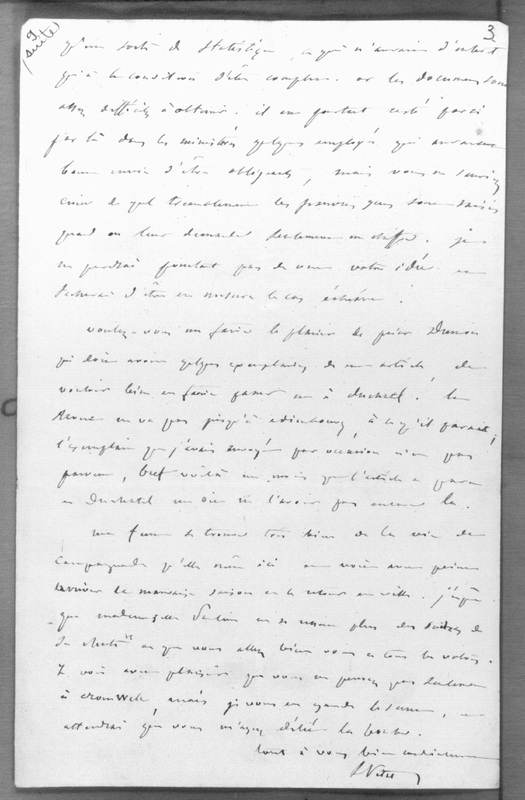 9 (suite)
3
qu'une sorte de statistique, ce qui n'aurait d'intérêt
qu'à la condition d'être complet. or les documents sont
assez difficiles à obtenir. il me faudrait
par là dans les ministères quelques employés qui auraient
bonne envie d'être obligeants, mais vous ne sauriez
croire de quel tremblement les pauvres gens sont saisis
quand on leur demande seulement un chiffre. je
ne perdrai pourtant pas de vue votre idée et
tâcherai d'être en mesure le cas échéant.
voulez-vous me faire le plaisir de prier
qui doit avoir quelques exemplaires de mon article de
vouloir bien en faire passer un à Duchatel. la
Revue ne va pas jusqu'à Edimbourg, à ce qu'il paraît,
l'exemplaire que j'avais envoyé par occasion n'est pas
parvenu, bref voilà un mois que l'article a paru
et Duchatel me dit ne l'avoir pas encore lu.
ma femme se trouve très bien de la vie de
campagne qu'elle mène ici et voit avec peine
arriver la mauvaise saison et le retour en ville. j'espère
que mademoiselle ne se ressent plus des suites de
sa chute et que vous allez bien vous et tous les vôtres.
Je vois avec plaisir que vous ne pensez pas seulement
à Cromwell mais je vous en garde le secret, et
attendrai que vous m'ayez délié la bouche.
tout à vous bien cordialement
L Vitet